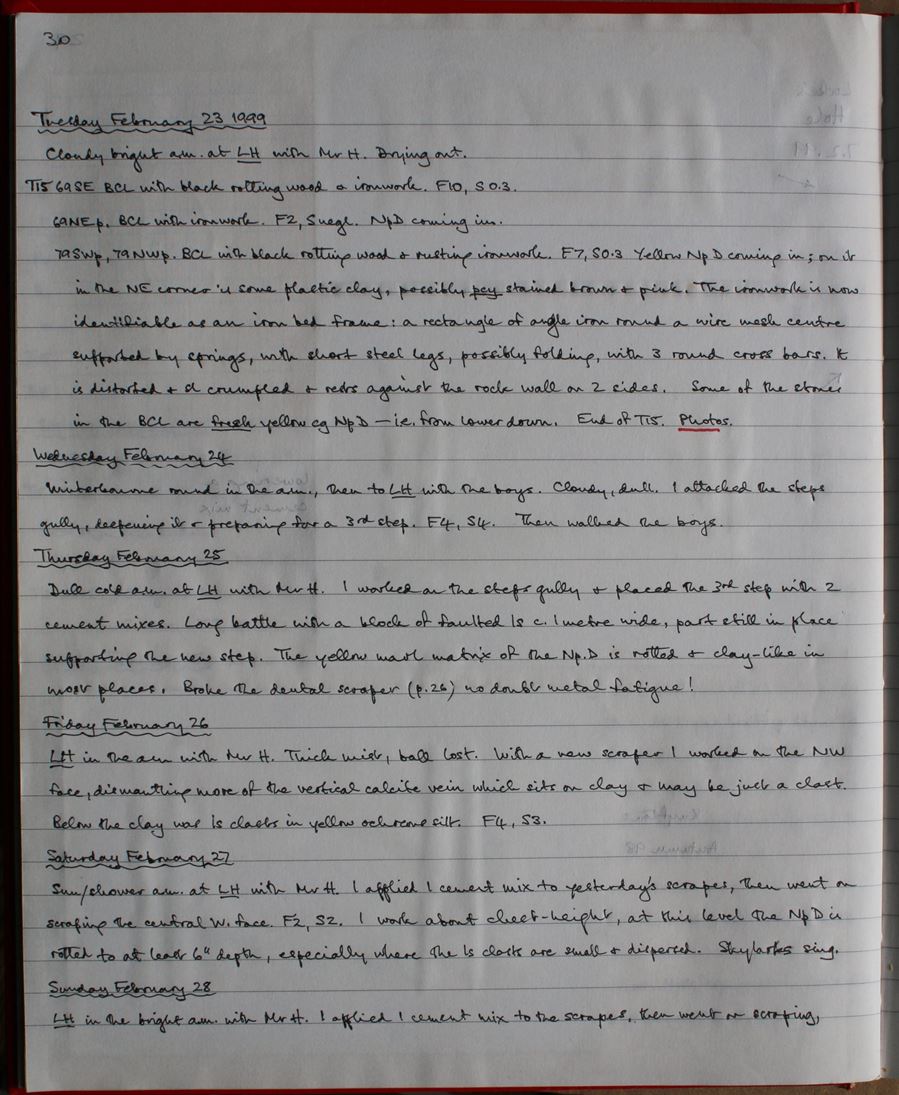 30
Tuesday February 23 1999
Cloudy bright a.m. at LH with Mr H. Drying out.
T15 69SE BCL with black rotting wood & ironwork. F10, S0.3.
69NEp. BCL with ironwork. F2, S negl. NpD coming in.
79SWp, 79NWp. BCL with black rotting wood & rusting ironwork. F7, S0.3 Yellow NpD coming in; on it
in the NE corner is some plastic clay, possibly stained brown & pink. The ironwork is now
identifiable as an iron bed frame: a rectangle of angle iron round a wire mesh centre
supported by springs, with short steel legs, possibly folding, with 3 round cross bars. It
is distorted & crumpled & rests against the rock wall on 2 sides. Some of the stones
in the BCL are fresh yellow cg NpD — i.e. from lower down. End of T15. Photos.
Wednesday February 24
Winterbourne round in the a.m., then to LH with the boys. Cloudy, dull. I attacked the steps
gully, deepening it & preparing for a 3rd step. F4, S4. Then walked the boys.
Thursday February 25
Dull cold a.m. at LH with Mr H. I worked on the steps gully & placed the 3rd step with 2
cement mixes. Long battle with a block of faulted ls c. 1 metre wide, part still in place
supporting the new step. The yellow marl matrix of the Np.D is rotted & clay-like in
most places. Broke the dental scraper (p.26) no doubt metal fatigue!
Friday February 26
LH in the am with Mr H. Thick mist, ball lost. With a new scraper I worked on the NW
face, dismantling more of the vertical calcite vein which sits on clay & may be just a clast.
Below the clay was ls clasts in yellow ochreous silt. F4, S3.
Saturday February 27
Sun/shower a.m. at LH with Mr H. I applied 1 cement mix to yesterday's scrapes, then went on
scraping the central W. face. F2, S2. I work about chest-height, at this level the NpD is
rotted to at least 6" depth, especially where the ls clasts are small & dispersed. Skylarks sing.
Sunday February 28
LH in the bright a.m. with Mr H. I applied 1 cement mix to the scrapes, then went on scraping,